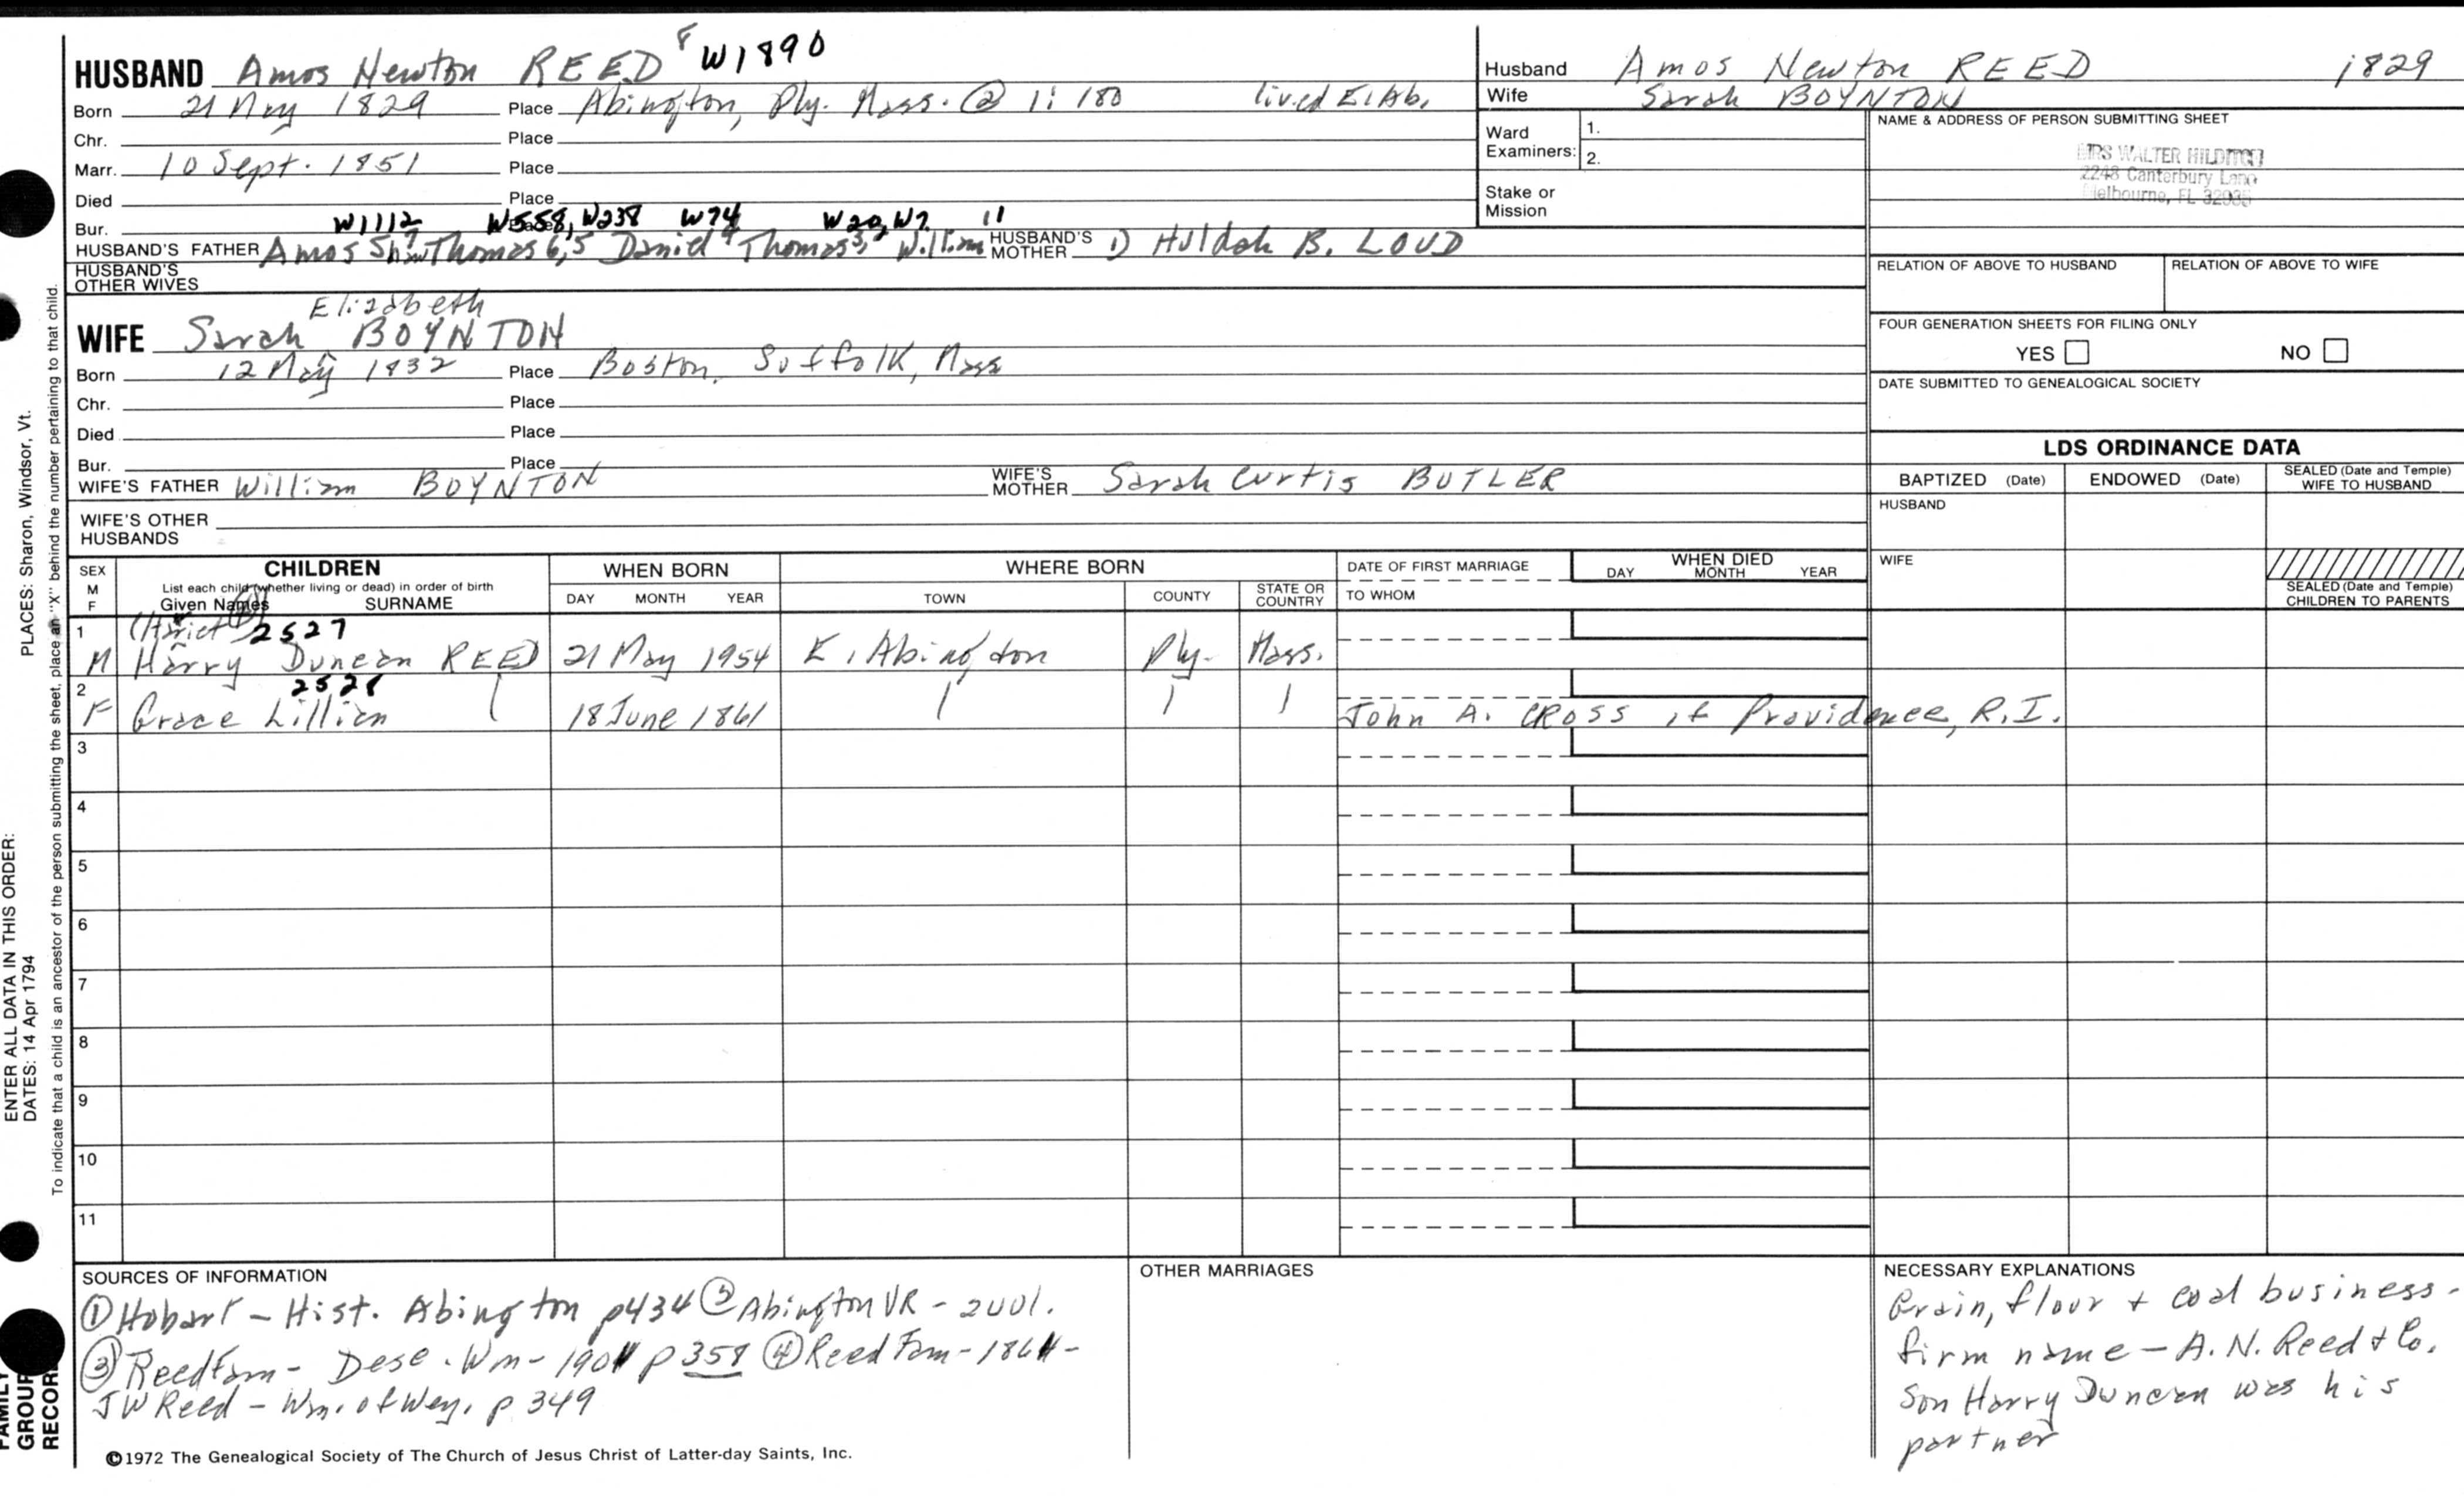 HUSBAND Amos Newton REED 8 W1890
Born 21 May 1829 Place Abington, Ply. Mass. @ 1: 180 lived E. Ab.
Chr. Place
Marr. 10 Sept. 1851 Place
Died Place
Bur. W1112 W558, W238 W74 W20, W7 11
HUSBAND'S FATHER Amos Thomas 6,5 Daniel Thomas William HUSBAND'S MOTHER 1) Huldah B. LOUD
HUSBAND'S OTHER WIVES
Elizabeth
WIFE Sarah BOYNTON
Born 12 May 1832 Place Boston, Suffolk, Mass
Chr. Place
Died Place
Bur. Place
WIFE'S FATHER William BOYNTON WIFE'S MOTHER Sarah Curtis BUTLER
WIFE'S OTHER HUSBANDS
Husband Amos Newton REED 1829
Wife Sarah BOYNTON
Ward Examiners: 1.
2.
Stake or Mission
NAME & ADDRESS OF PERSON SUBMITTING SHEET
MRS WALTER
2248 Canterbury Lane
Melbourne, FL
RELATION OF ABOVE TO HUSBAND RELATION OF ABOVE TO WIFE
FOUR GENERATION SHEETS FOR FILING ONLY
YES NO
DATE SUBMITTED TO GENEALOGICAL SOCIETY
LDS ORDINANCE DATA
BAPTIZED (Date) ENDOWED (Date) SEALED (Date and Temple) WIFE TO HUSBAND
HUSBAND
WIFE
SEALED (Date and Temple) CHILDREN TO PARENTS
SEX M F CHILDREN WHEN BORN WHERE BORN DATE OF FIRST MARRIAGE WHEN DIED
List each child (whether living or dead) in order of birth
Given Names SURNAME DAY MONTH YEAR TOWN COUNTY STATE OR COUNTRY TO WHOM DAY MONTH YEAR
1 2527
M Harry Duncan REED 21 May 1954 E. Abington Ply. Mass.
2 2528
F Grace Lillian 18 June 1861 John A. CROSS of Providence, R.I.
3
4
5
6
7
8
9
10
11
SOURCES OF INFORMATION
① Hobart - Hist. Abington p434 ② Abington VR - 2vol.
③ Reed Fam - Desc. Wm - 1901 p 358 ④ Reed Fam - 1861 -
JW Reed - Wm. of Wey. p 349
OTHER MARRIAGES
NECESSARY EXPLANATIONS
Grain, flour + coal business -
firm name - A. N. Reed + Co.
Son Harry Duncan was his
partner
©1972 The Genealogical Society of The Church of Jesus Christ of Latter-day Saints, Inc.
PLACES: Sharon, Windsor, Vt.
ENTER ALL DATA IN THIS ORDER:
DATES: 14 Apr 1794
To indicate that a child is an ancestor of the person submitting the sheet, place an "X" behind the number pertaining to that child.
FAMILY
GROUP
RECORD